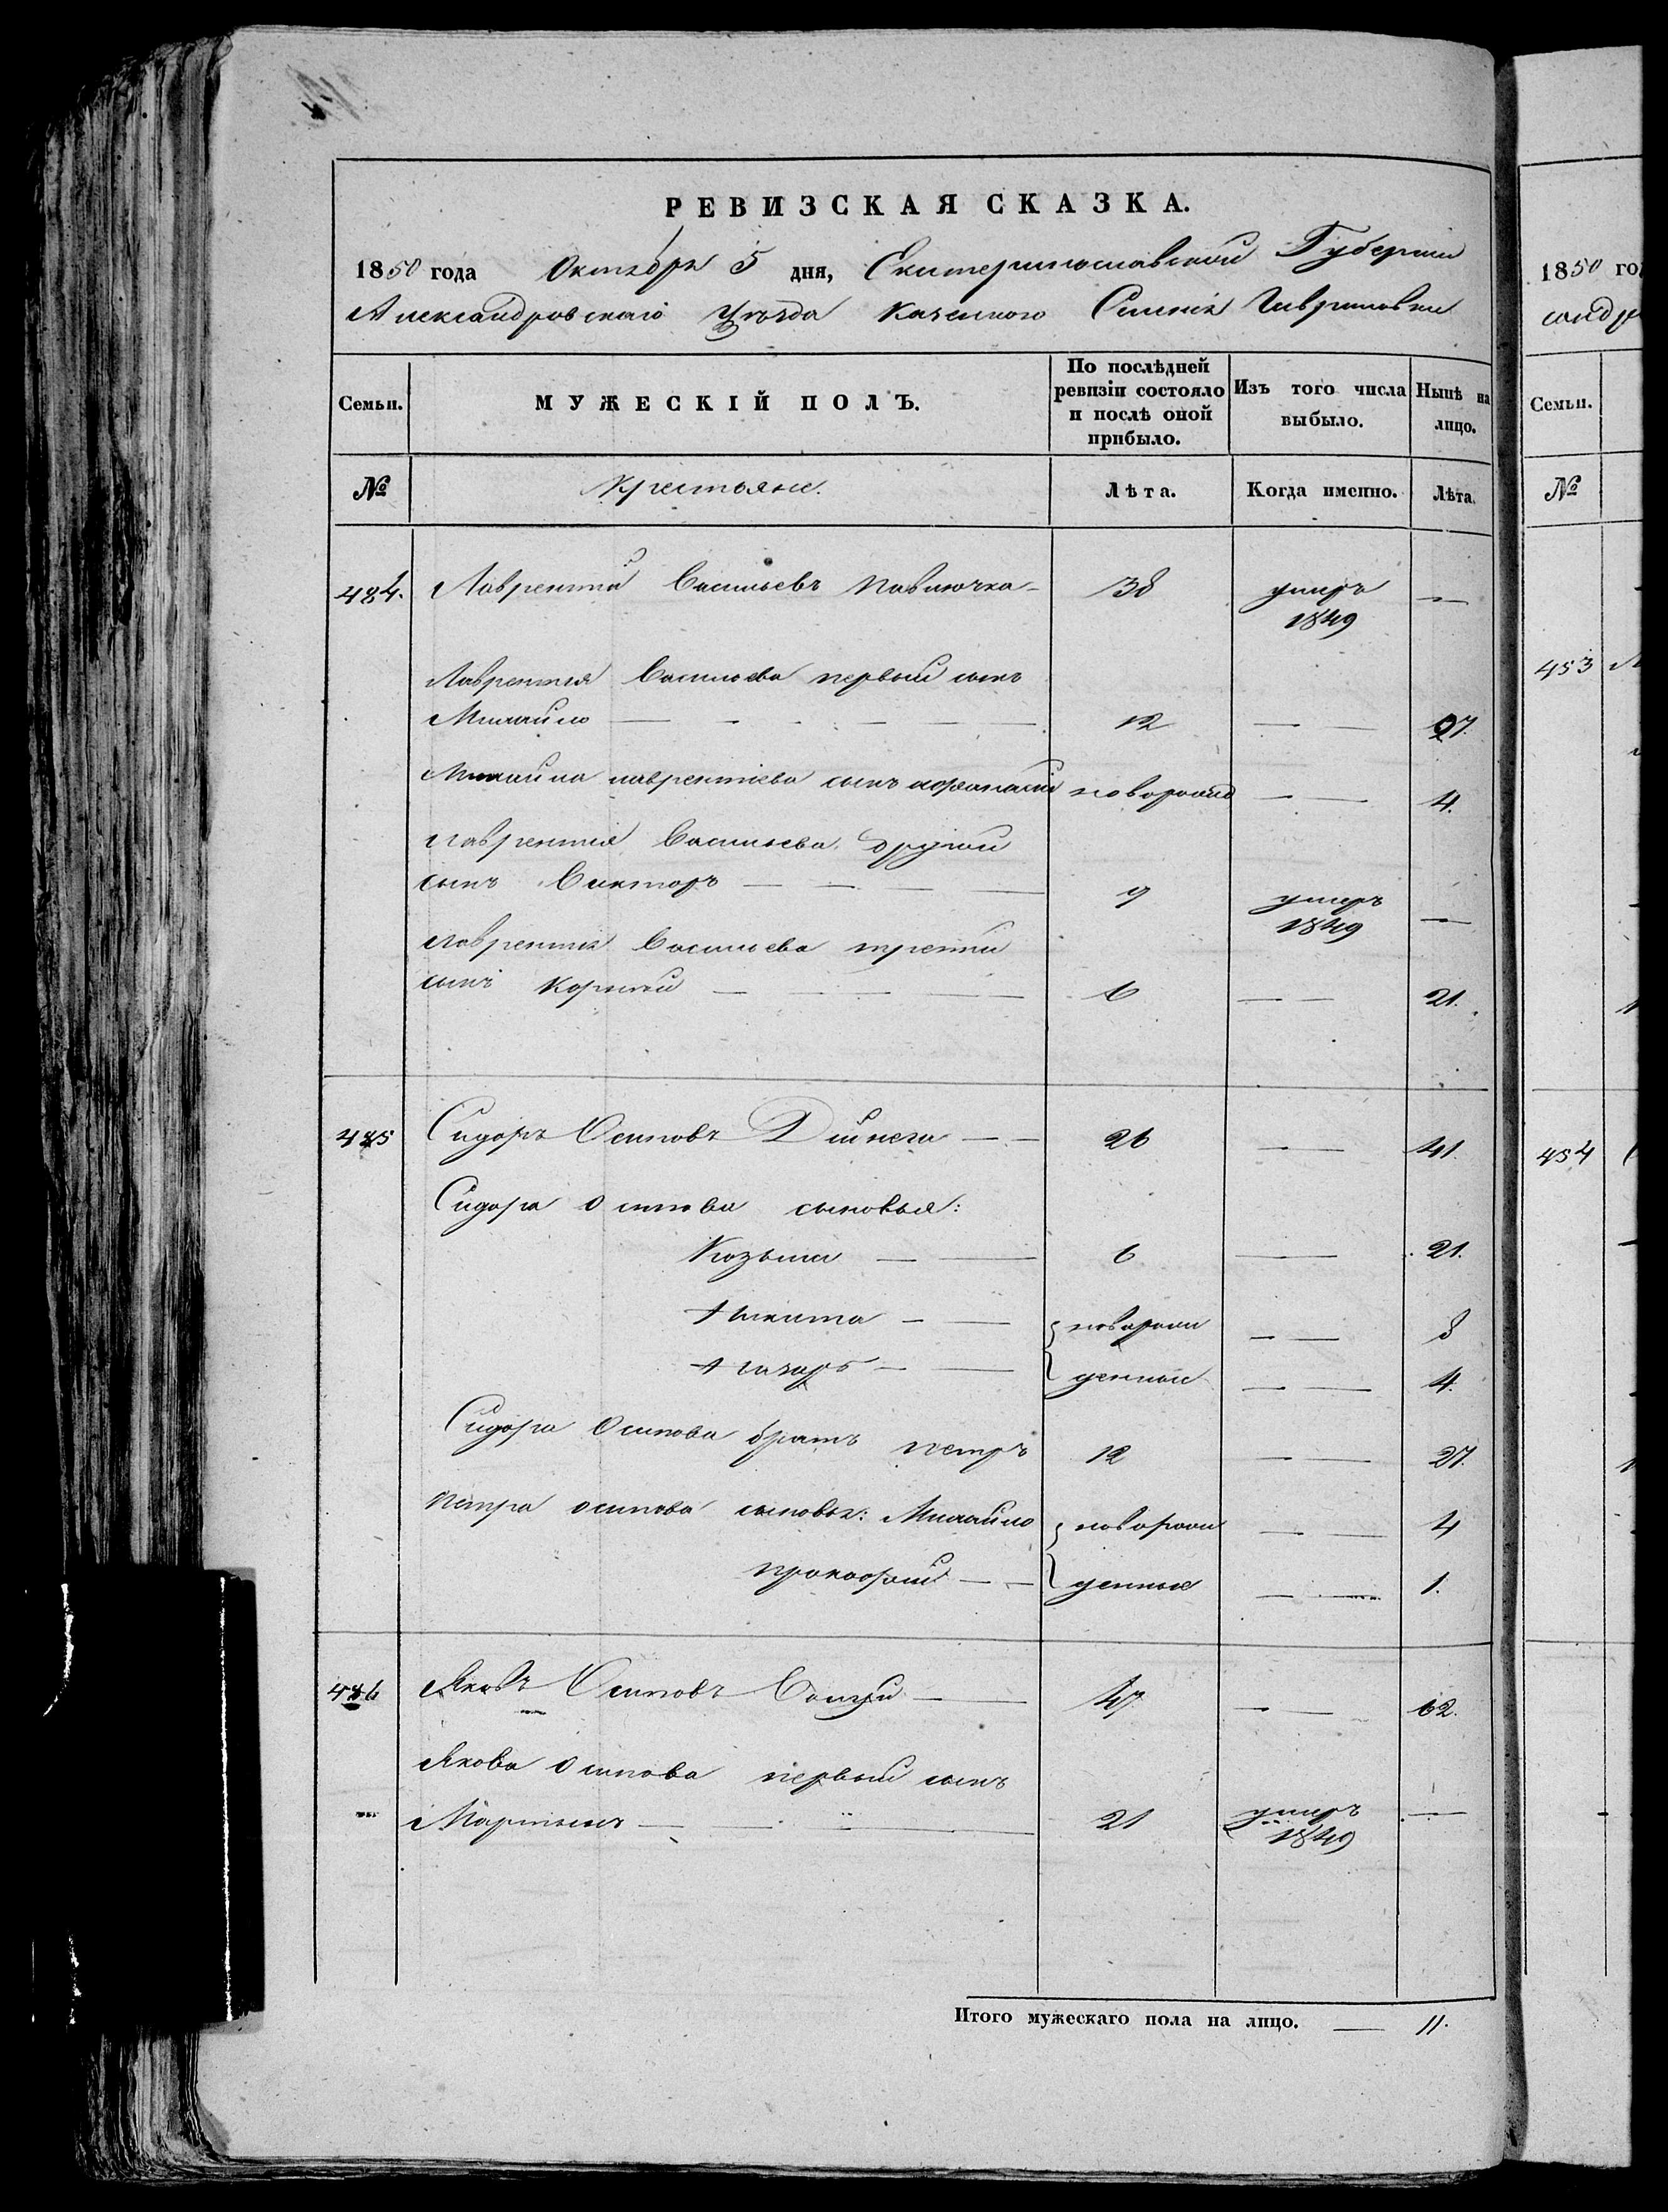 РЕВИЗСКАЯ СКАЗКА.
1850 года Октября 5 дня, Екатеринославской Губернии
Александровскаго Уѣзда Казенного Селенія Гавриловки
Семьи. МУЖЕСКІЙ ПОЛЪ. По послѣдней ревизіи состояло и послѣ оной прибыло. Изъ того числа выбыло. Нынѣ на лицо.
№ Крестьяне. Лѣта. Когда именно. Лѣта.
484. Лаврентій Васильевъ Павлючка 38 умеръ —
1849
Лаврентія Васильева первый сынъ
Михайло — 12 — 27.
Михайла Лаврентіева сынъ Афанасій новорожд — 4.
Лаврентія Васильева другой
сынъ Викторъ — 9 умеръ —
1849
Лаврентія Васильева третій
сынъ Корнѣй — 6 — 21.
485 Сидоръ Осиповъ Дійнега — 26 — 41.
Сидора Осипова сыновья:
Козьма — 6 — 21.
Никита — новорож — 8
Назаръ — денные — 4.
Сидора Осипова братъ Петръ 12 — 27.
Петра Осипова сыновья: Михайло новорож — 4
Прокофій — денные — 1.
486 Яковъ Осиповъ 47 — 62.
Якова Осипова первый сынъ
Мартынъ — 21 умеръ —
1849
Итого мужескаго пола на лицо. — 11.
1850 го
санд
Семьи.
№
453
454